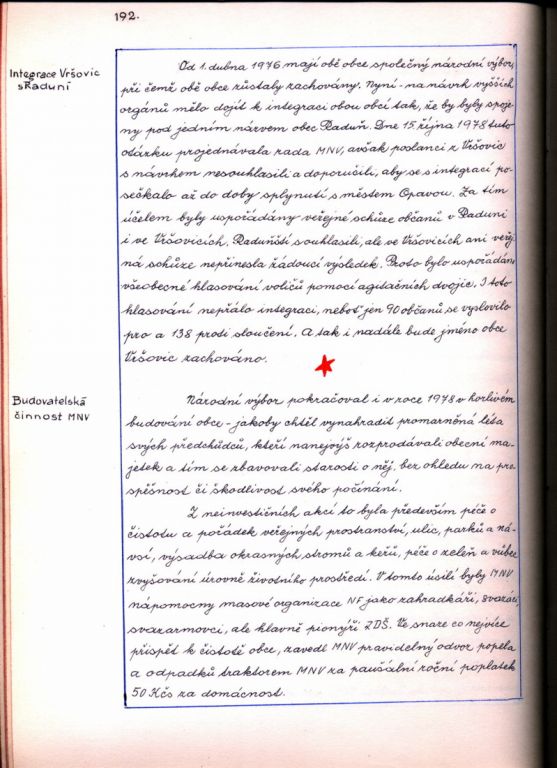 192.
Integrace Vršovic
s Raduní
Od 1. dubna 1976 mají obě obce společný národní výbor,
při čemž obě obce zůstaly zachovány. Nyní - na návrh vyšších
orgánů mělo dojít k integraci obou obcí tak, že by byly spoje-
ny pod jedním názvem obec Raduň. Dne 15. října 1978 tuto
otázku projednávala rada MNV, avšak poslanci z Vršovic
s návrhem nesouhlasili a doporučili, aby se s integrací po-
sečkalo až do doby splynutí s městem Opavou. Za tím
účelem byly uspořádány veřejné schůze občanů v Raduni
i ve Vršovicích. Raduňští souhlasili, ale ve Vršovicích ani veřej
ná schůze nepřinesla žádoucí výsledek. Proto bylo uspořádáno
všeobecné hlasování voličů pomocí agitačních dvojic. I toto
hlasování nepřálo integraci, neboť jen 90 občanů se vyslovilo
pro a 138 proti sloučení. A tak i nadále bude jméno obce
Vršovic zachováno.
Budovatelská
činnost MNV
Národní výbor pokračoval i v roce 1978 v horlivém
budování obce - jakoby chtěl vynahradit promarněná léta
svých předchůdců, kteří nanejvýš rozprodávali obecní ma-
jetek a tím se zbavovali starosti o něj, bez ohledu na pro-
spěšnost či škodlivost svého počínání.
Z neinvestičních akcí to byla především péče o
čistotu a pořádek veřejných prostranství, ulic, parků a ná-
vsí, výsadba okrasných stromů a keřů, péče o zeleň a vůbec
zvyšování úrovně životního prostředí. V tomto úsilí byly MNV
nápomocny masové organizace NF jako zahradkáři, svazáci,
svazarmovci, ale hlavně pionýři ZDŠ. Ve snaze co nejvíce
přispět k čistotě obce, zavedl MNV pravidelný odvoz popela
a odpadků traktorem MNV za paušální roční poplatek
50 Kčs za domácnost.